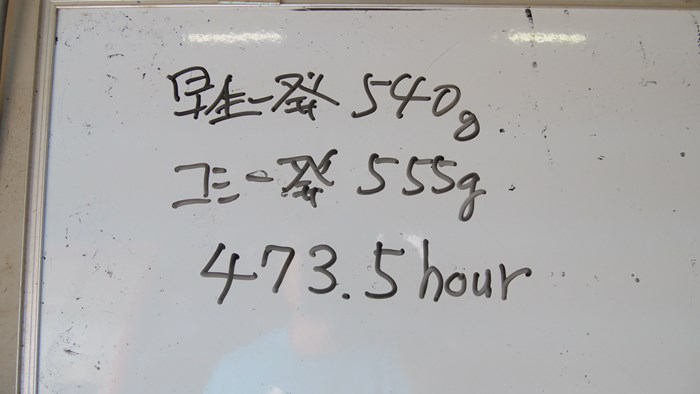 早生一発 540g
コミー発 555g
473.5hour